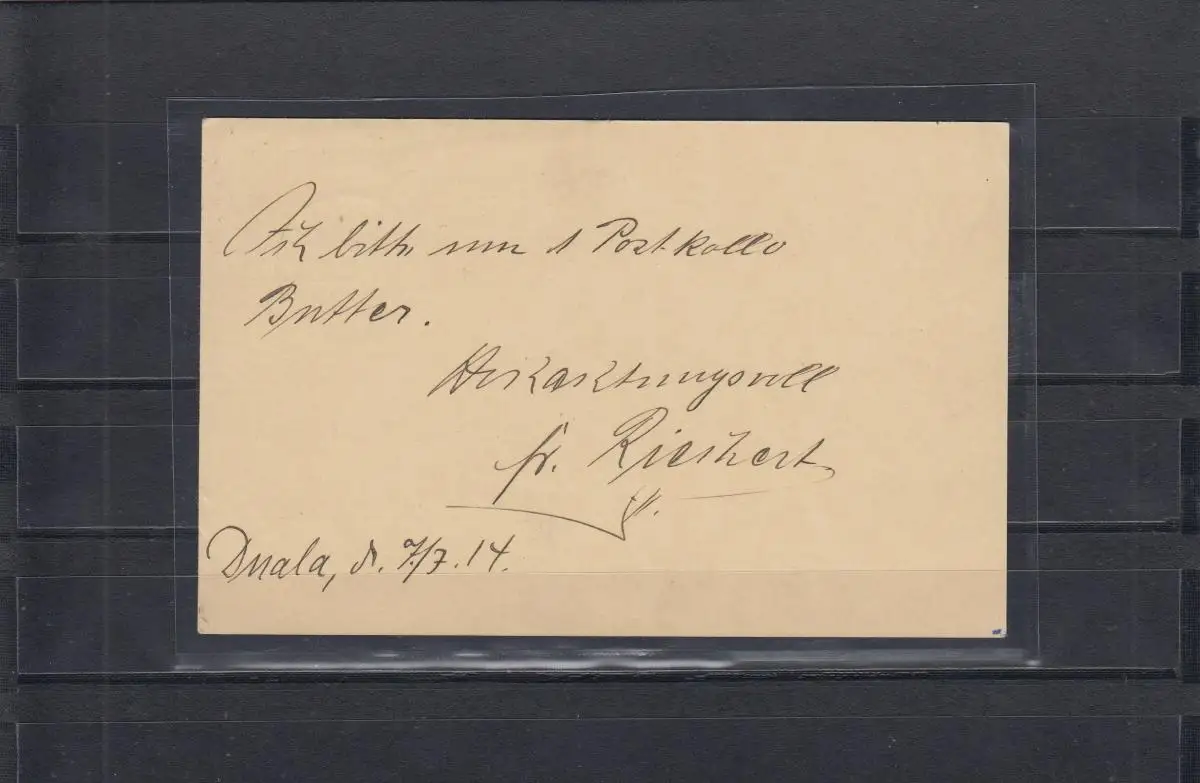 Ich bitte um 1 Postkollo
Butter.
Hochachtungsvoll
fr. Riechert
Duala, d. 7/7.14.